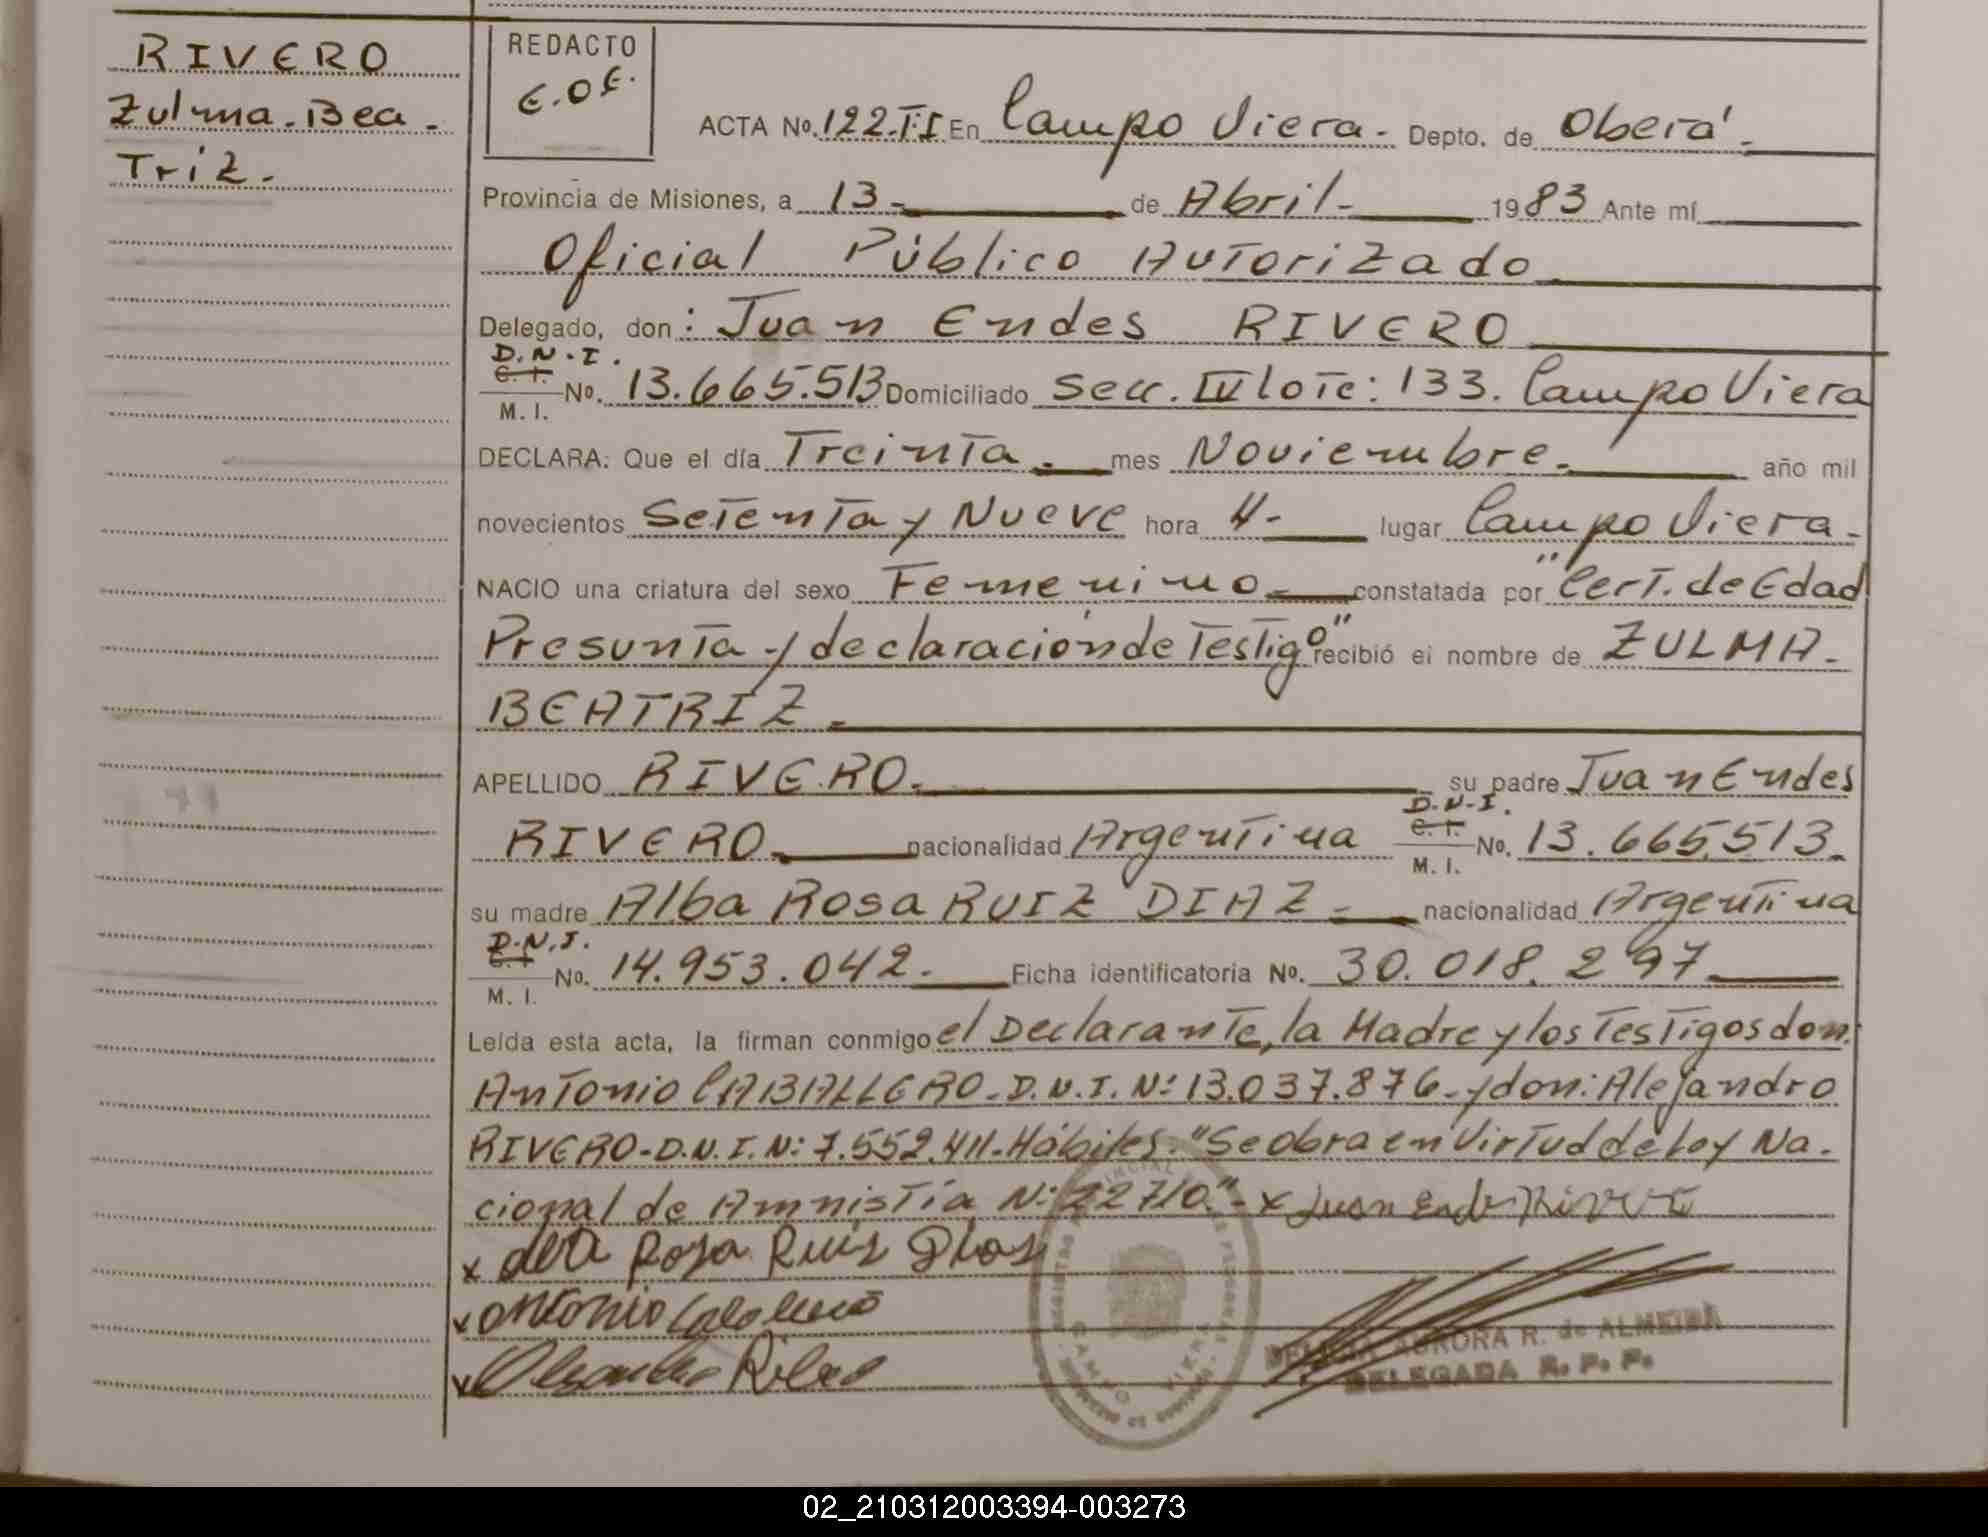 RIVERO
Zulma-Bea-
Triz.
REDACTO
E.O.E.
ACTA Nº 122.T.I En Campo Viera.- Depto. de Oberá.-
Provincia de Misiones, a 13.- de Abril.- 1983 Ante mí
Oficial Público Autorizado
Delegado, don: Juan Endes RIVERO
D.N.I.
C. I.
M. I.
Nº. 13.665.513 Domiciliado Secc. IV lote: 133. Campo Viera
DECLARA: Que el día Treinta.- mes Noviembre.- año mil
novecientos Setenta y Nueve hora 4- lugar Campo Viera.-
NACIO una criatura del sexo Femenino.- constatada por "Cert. de Edad
Presunta y declaración de Testigo" recibió el nombre de ZULMA-
BEATRIZ.-
APELLIDO RIVERO.- su padre Juan Endes
RIVERO.- nacionalidad Argentina D.N.I. C. I. M. I. Nº. 13.665.513.-
su madre Alba Rosa RUIZ DIAZ.- nacionalidad Argentina
D.N.I.
C. I.
M. I.
Nº. 14.953.042.- Ficha identificatoria Nº. 30.018.297
Leída esta acta, la firman conmigo el Declarante, la Madre y los Testigos don:
Antonio CABALLERO-D.N.I.Nº:13.037.876-y don: Alejandro
RIVERO-D.N.I.N:7.552.411-Hábiles.-"Se obra en Virtud de Ley Na-
cional de Amnistía Nº:22710."- x Juan Endes Rivero
x Alba Rosa Ruis Dias
x Antonio Caballero
x
CAMPO VIERA
AURORA R. de ALMEIDA
DELEGADA R. P. P.
02_210312003394-003273